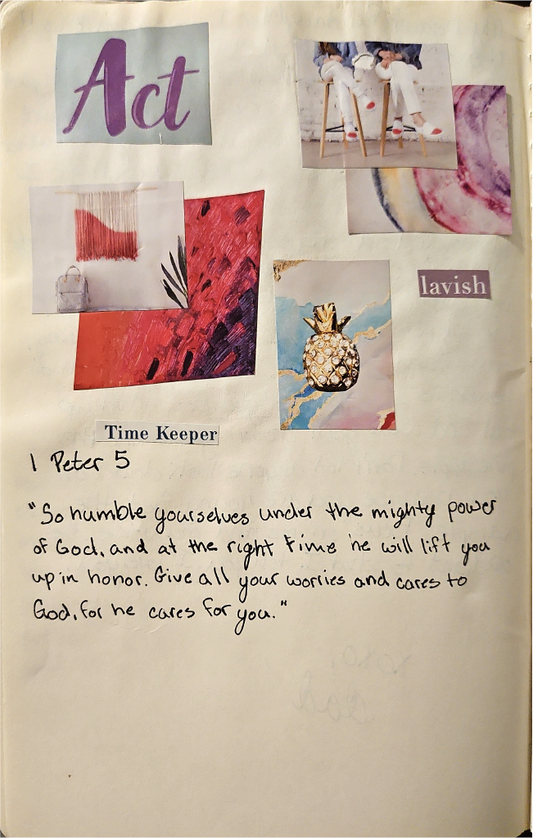 Act
lavish
Time Keeper
1 Peter 5
"So humble yourselves under the mighty power
of God, and at the right time he will lift you
up in honor. Give all your worries and cares to
God, for he cares for you."